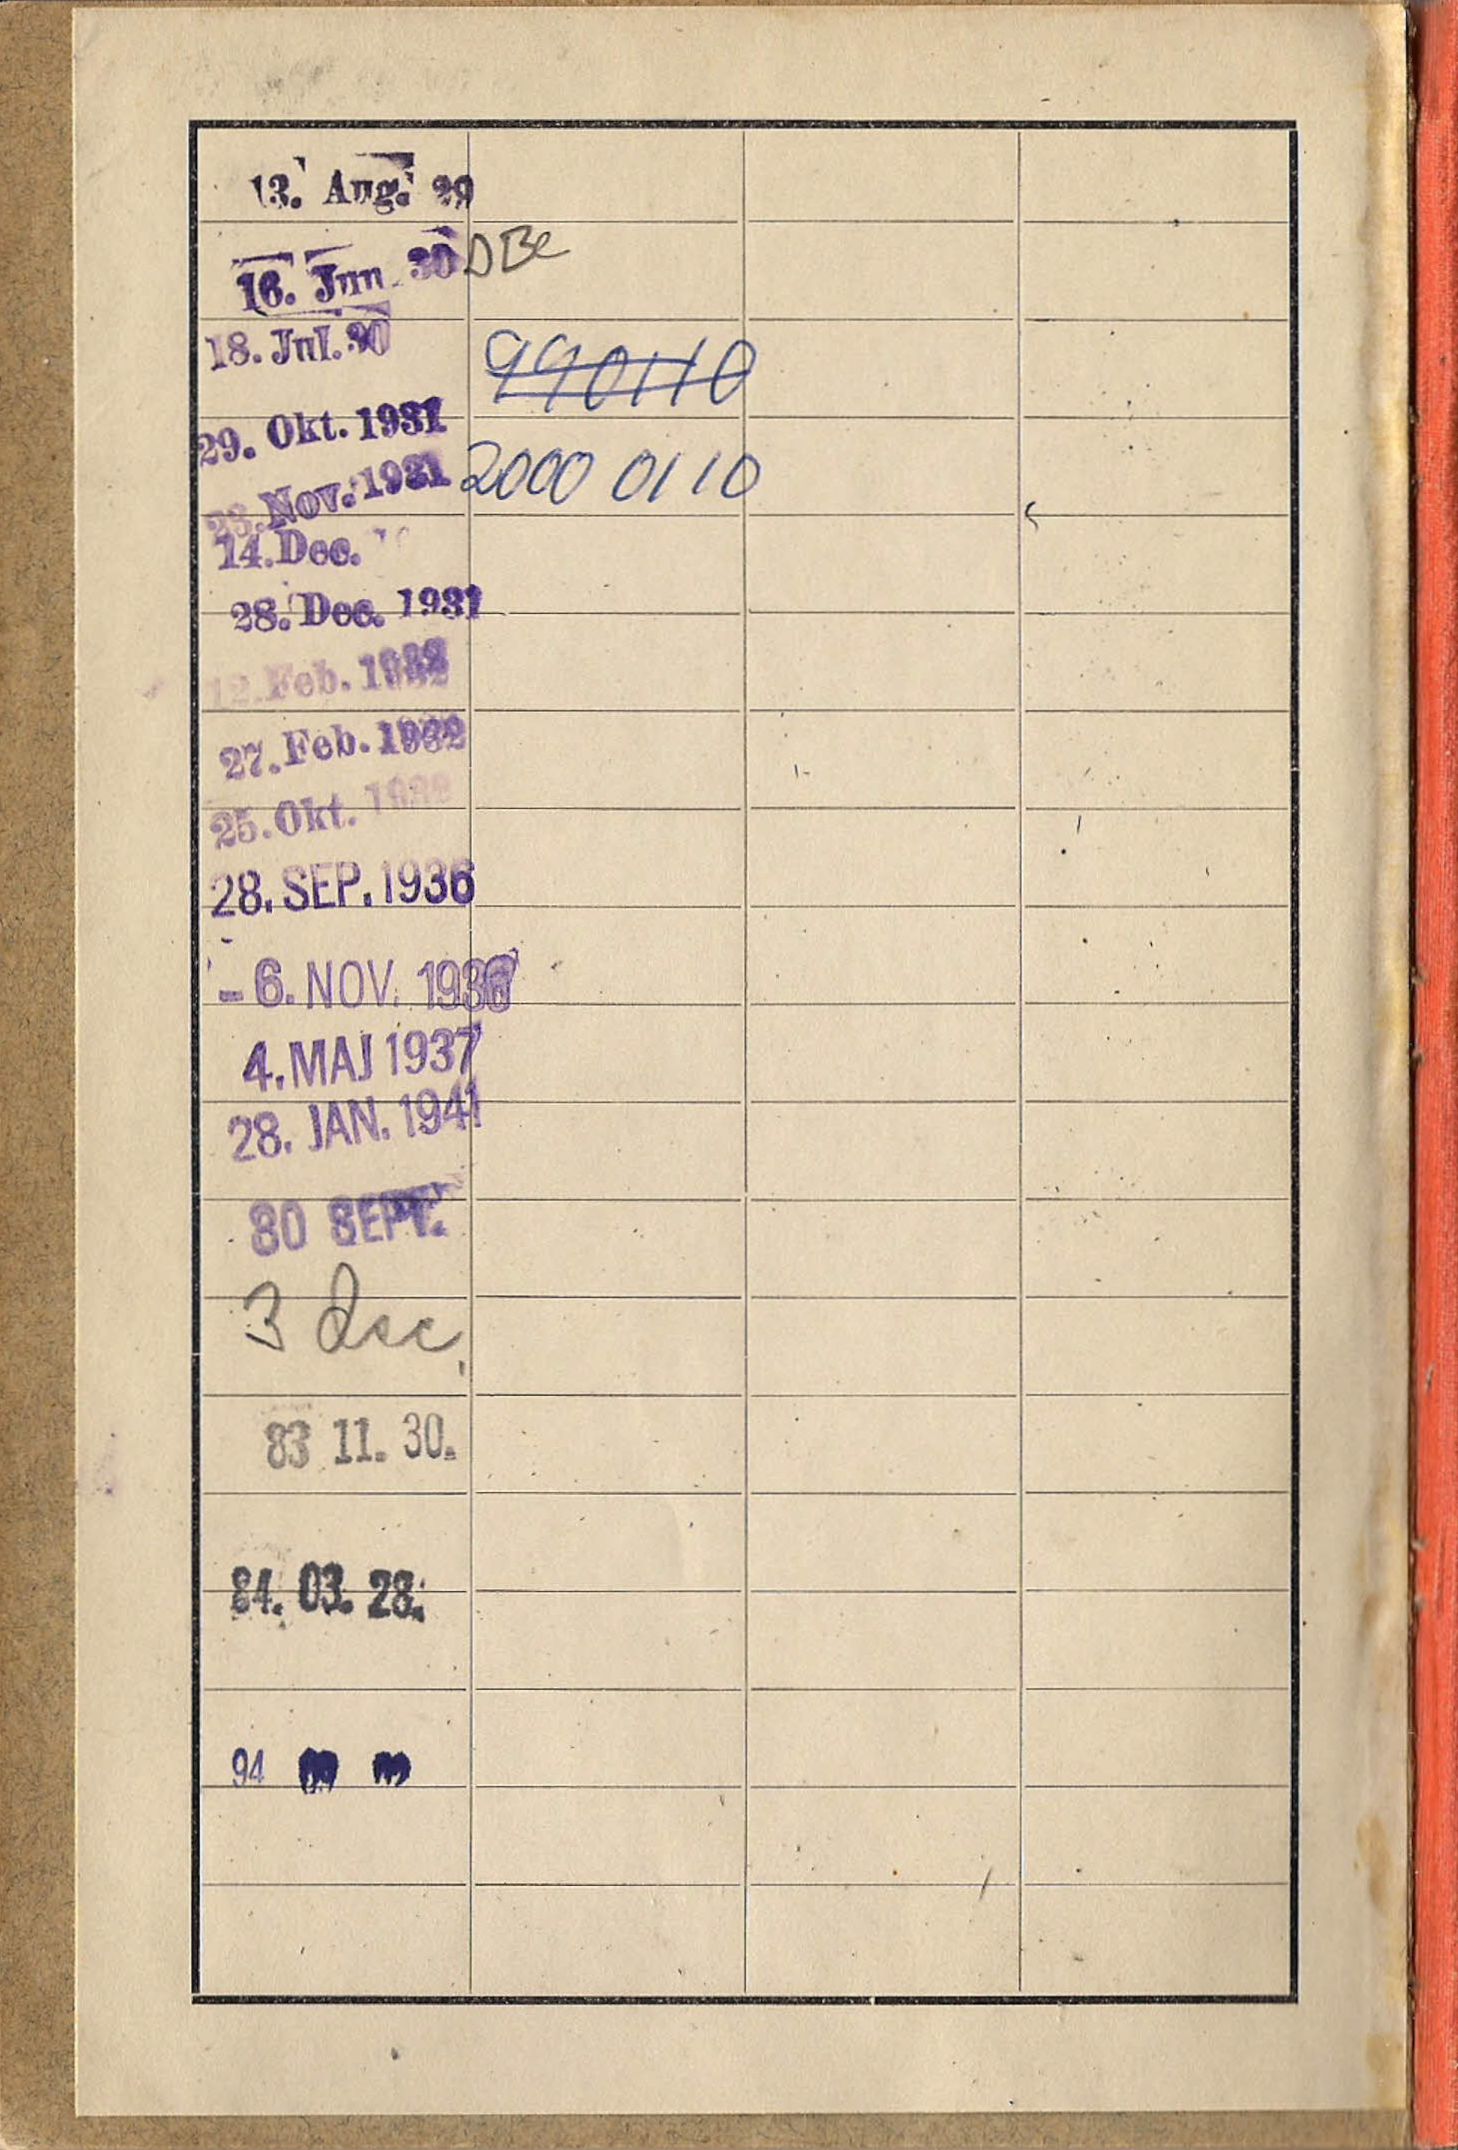 13. Aug. 29
16. Jun. 30 DBe
18. Jul. 30
990110
29. Okt. 1931
23. Nov. 1931
2000 01 10
14. Dec.
28. Dec. 1931
12. Feb. 1932
27. Feb. 1932
25. Okt. 1932
28. SEP. 1936
- 6. NOV. 1936
4. MAJ 1937
28. JAN. 1941
30 SEPT.
3 dec.
83 11. 30.
84. 03. 28.
94